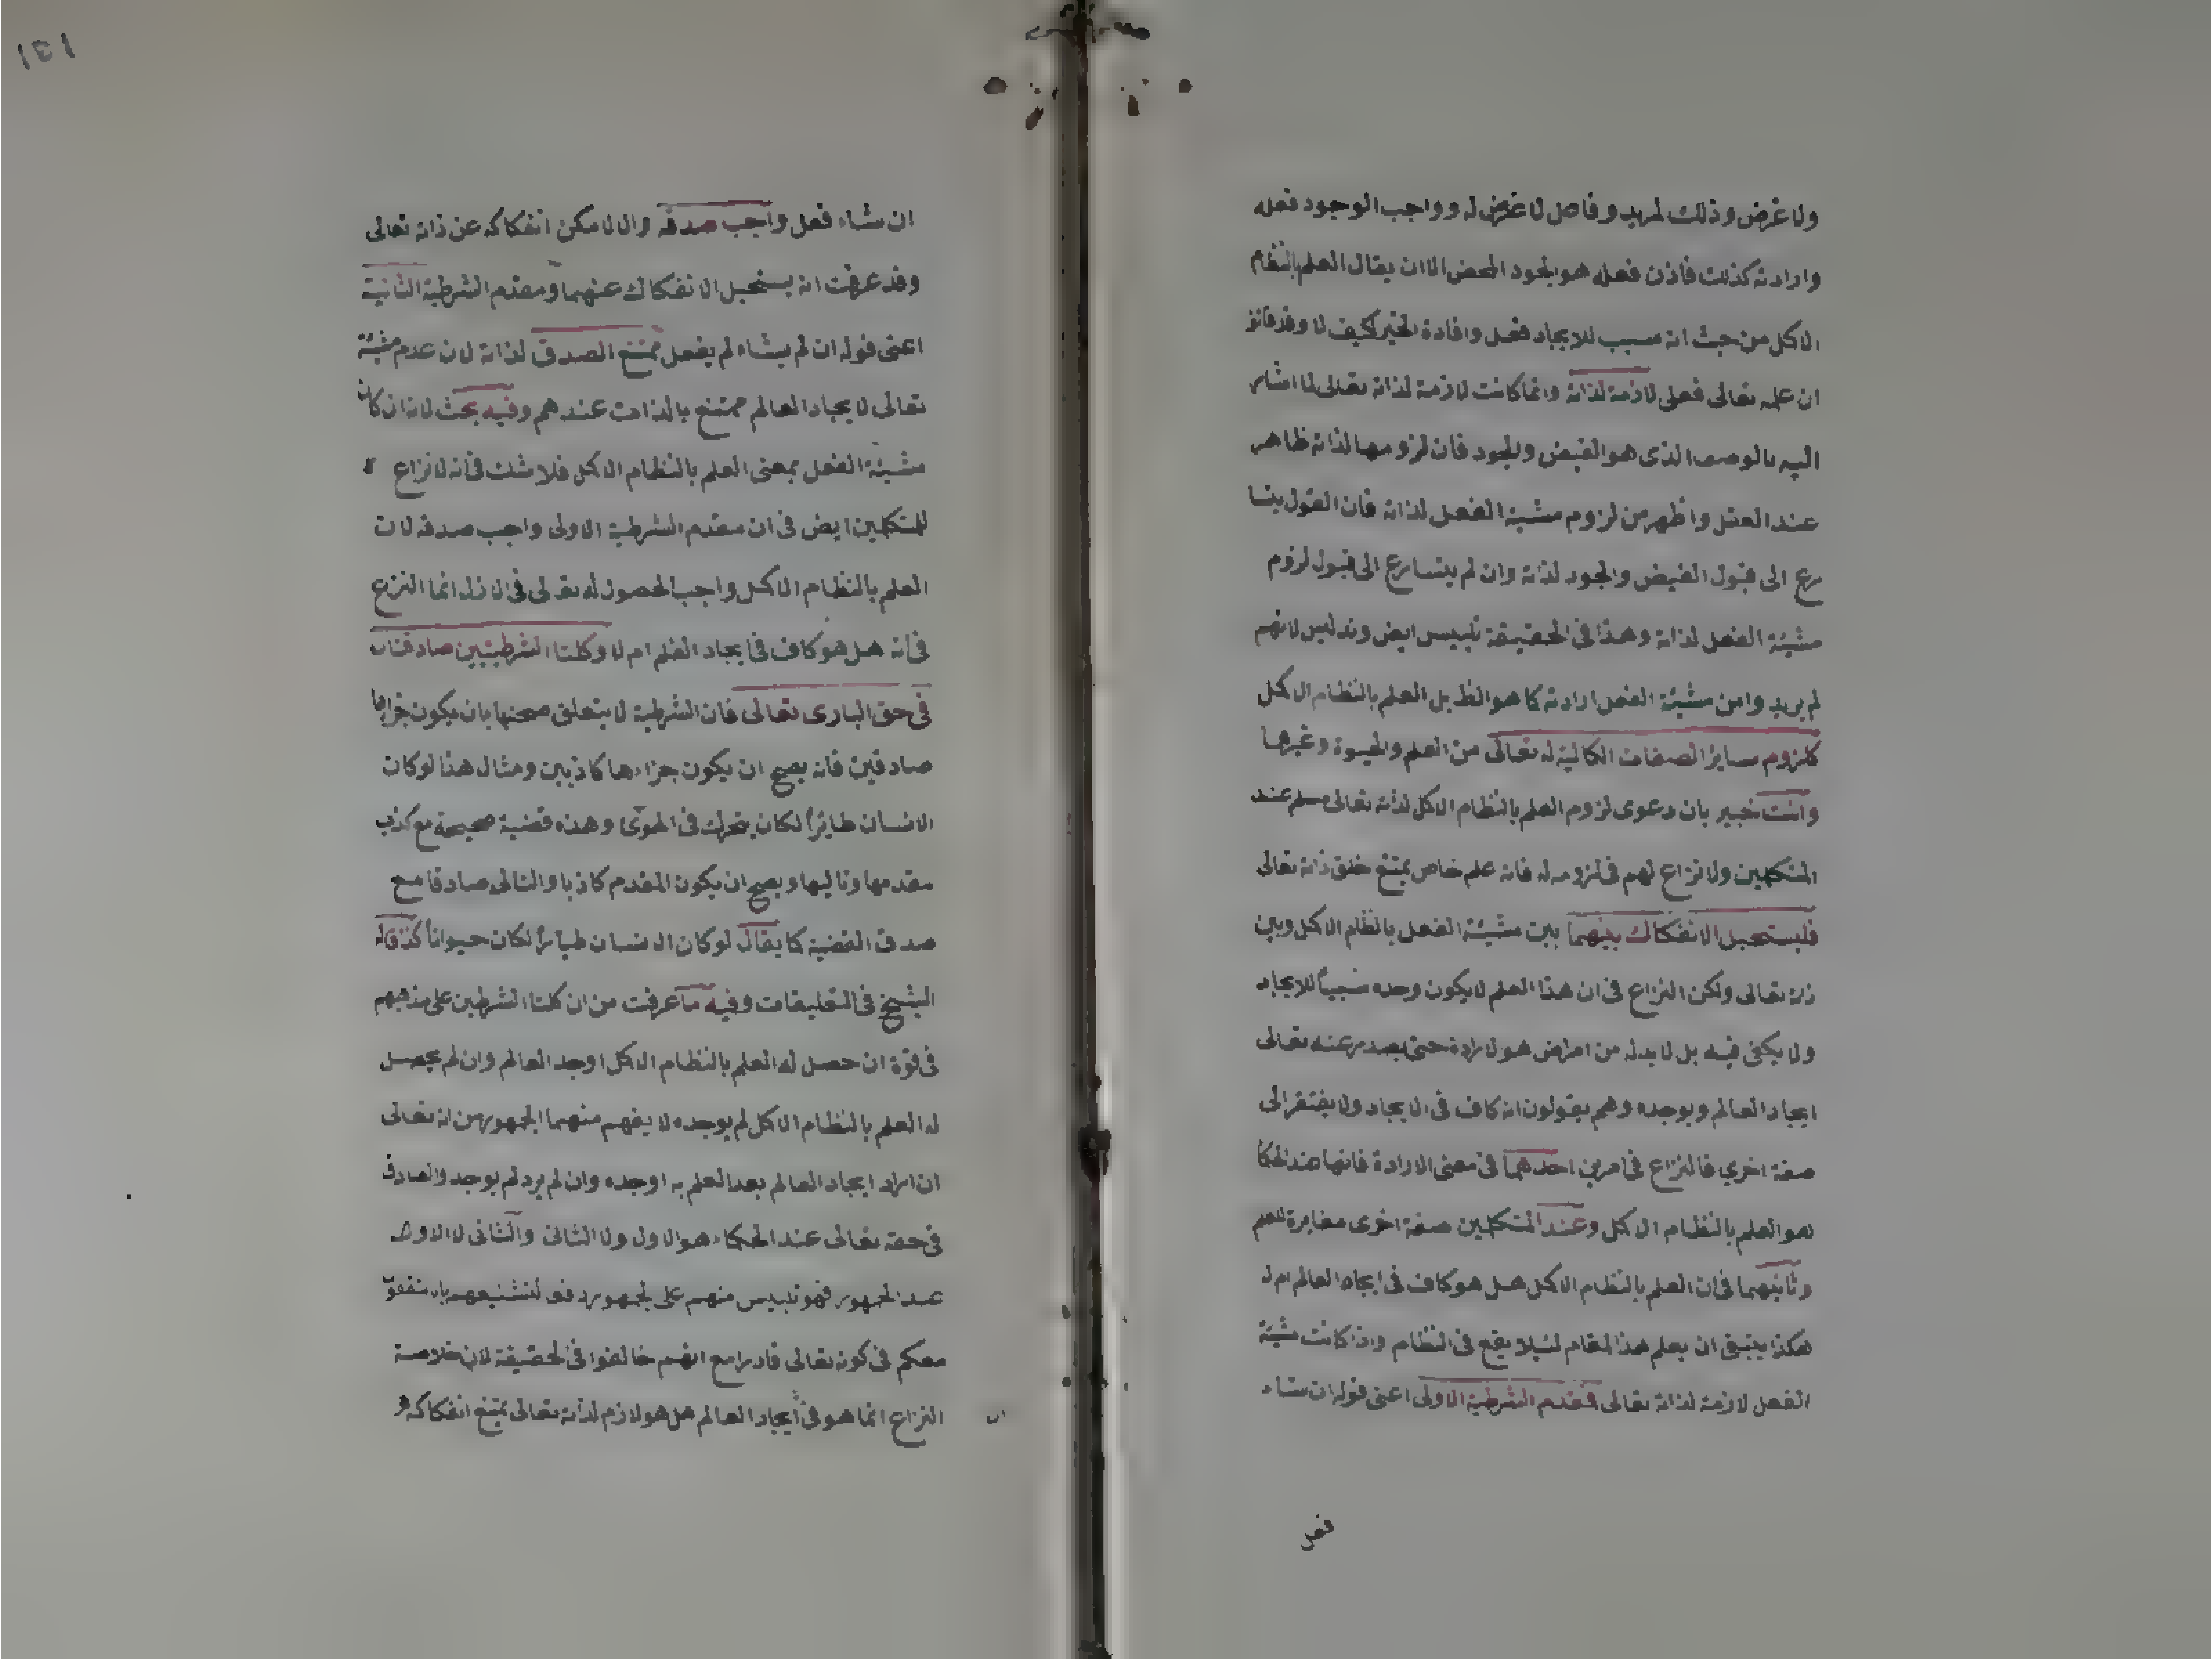 ولا غرض وذلك لمريد وفاصل لا غرض له وواجب الوجود فعله
وارادته كذلك فاذن فعله هو الجود المحض الا ان يقال العلم بالنظام
الاكل من حيث انه سبب للايجاد فعل وافادة الخير كيف لا وقد قالوا
ان علمه تعالى فعلى لازمة لذاته وانما كانت لازمة لذاته تعالى لما اشار
اليه بالوصف الذى هو الفيض والجود فان لزومها لذاته ظاهر
عند العقل واظهر من لزوم مشية الفعل لذاته فان العقول يتسا
رع الى قبول الفيض والجود لذاته وان لم يتسارع الى قبول لزوم
مشيئة الفعل لذاته وهذا فى الحقيقة تلبيس ايض وتدليس لانهم
لم يريدوا من مشيئة الفعل ارادته كما هو الظ بل العلم بالنظام الاكل
كلزوم ساير الصفات الكالية له تعالى من العلم والحيوة وغيرها
وانت خبير بان دعوى لزوم العلم بالنظام الاكل لذاته تعالى مسلم عند
المتكلمين ولا نزاع لهم فى لزومه له فانه علم خاص يمتنع خلق ذاته تعالى
فليستحيل الانفكاك بينهما بين مشيئة الفعل بالنظام الاكل وبين
ذاته تعالى ولكن النزاع فى ان هذا العلم لا يكون وحده سبباً للايجاد
ولا يكفى فيه بل لا بد له من امر اض هو الارادة حتى يصدر عنه تعالى
ايجاد العالم ويوجده وهم يقولون انه كاف فى الايجاد ولا يفتقر الى
صفة اخرى فالنزاع فى امرين احدهما فى معنى الارادة فانها عند الحكما
هو العلم بالنظام الاكل وعند المتكلمين صفة اخرى مغايرة للعلم
وثانيهما فى ان العلم بالنظام الاكل هل هو كاف فى ايجاد العالم ام لا
هكذا ينبغى ان يعلم هذا المقام لئلا يقع فى النظام واذا كانت مشيئة
الفعل لازمة لذاته تعالى فمقدم الشرطية الاولى اعنى قوله ان شاء
فعل
١٤١
ان شاء فعل واجب صدقه والا لامكن انفكاكه عن ذاته تعالى
وقد عرفت انه يستحيل الانفكاك عنهما ومقدم الشرطية الثانية
اعنى قوله ان لم يشاء لم يفعل ممتنع الصدق لذاته لان عدم مشيئة
تعالى لايجاد العالم ممتنع بالذات عندهم وفيه بحث لانه ان كان
مشيئة الفعل بمعنى العلم بالنظام الاكل فلا شك فى انه لا نزاع
للمتكلمين ايض فى ان مقدم الشرطية الاولى واجب صدقه لان
العلم بالنظام الاكل واجب الحصول له تعالى فى الازل انما النزاع
فى انه هل هو كاف فى ايجاد العالم ام لا وكلتا الشرطيتين صادقتان
فى حق البارى تعالى فان الشرطية لا يتعلق صحتها بان يكون جزاءها
صادقين فانه يصح ان يكون جزاءها كاذبين ومثال هذا لو كان
الانسان طايراً لكان يتحرك فى الهوى وهذه قضية صحيحة مع كذب
مقدمها وتاليها ويصح ان يكون المقدم كاذبا والتالى صادقا مع
صدق القضية كما يقال لو كان الانسان طياراً لكان حيواناً كذا قاله
الشيخ فى التعليقات وفيه ما عرفت من ان كلتا الشرطين على مذهبهم
فى قوة ان حصل له العلم بالنظام الاكل اوجد العالم وان لم يحصل
له العلم بالنظام الاكل لم يوجده لا يفهم منهما الجمهور من انه تعالى
ان اراد ايجاد العالم بعد العلم به اوجده وان لم يرد لم يوجد والصادق
فى حقه تعالى عند الحكماء هو الاول ولا الثانى والثانى لا الاول
عند الجمهور فهو تلبيس منهم على الجمهور دفعا لتشنيعهم بانه متفقون
معكم فى كونه تعالى قادرا مع انهم خالفوا فى الحقيقة لان خلاصة
النزاع انما هو فى ايجاد العالم هل هو لازم لذاته تعالى يمتنع انفكاكه و